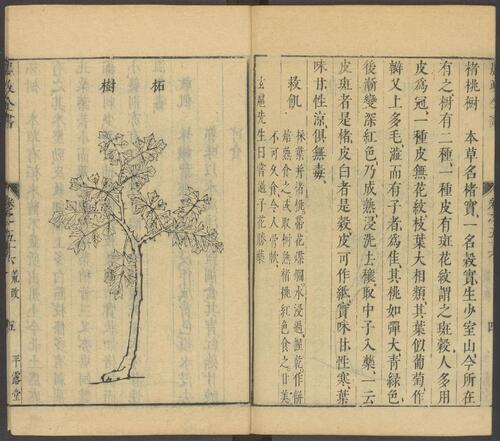 楮桃樹 本草名楮實一名穀實生少室山今所在
有之樹有二種一種皮有斑花紋謂之斑穀人多用
皮為冠一種皮無花紋枝葉大相類其葉似葡萄作
瓣叉上多毛澁而有子者為佳其桃如彈大青綠色
後漸變深紅色乃成熟浸洗去穰取中子入藥一云
皮斑者是楮皮白者是穀皮可作紙實味甘性寒葉
味甘性涼俱無毒
救飢 採葉并楮桃帶花煠爛水浸過握乾作餅
焙熟食之或取樹熟楮桃紅色食之甘美
不可久食令人骨軟
玄扈先生曰嘗過子花勝葉
柘
樹
卷之五十六
荒政
五
平露堂